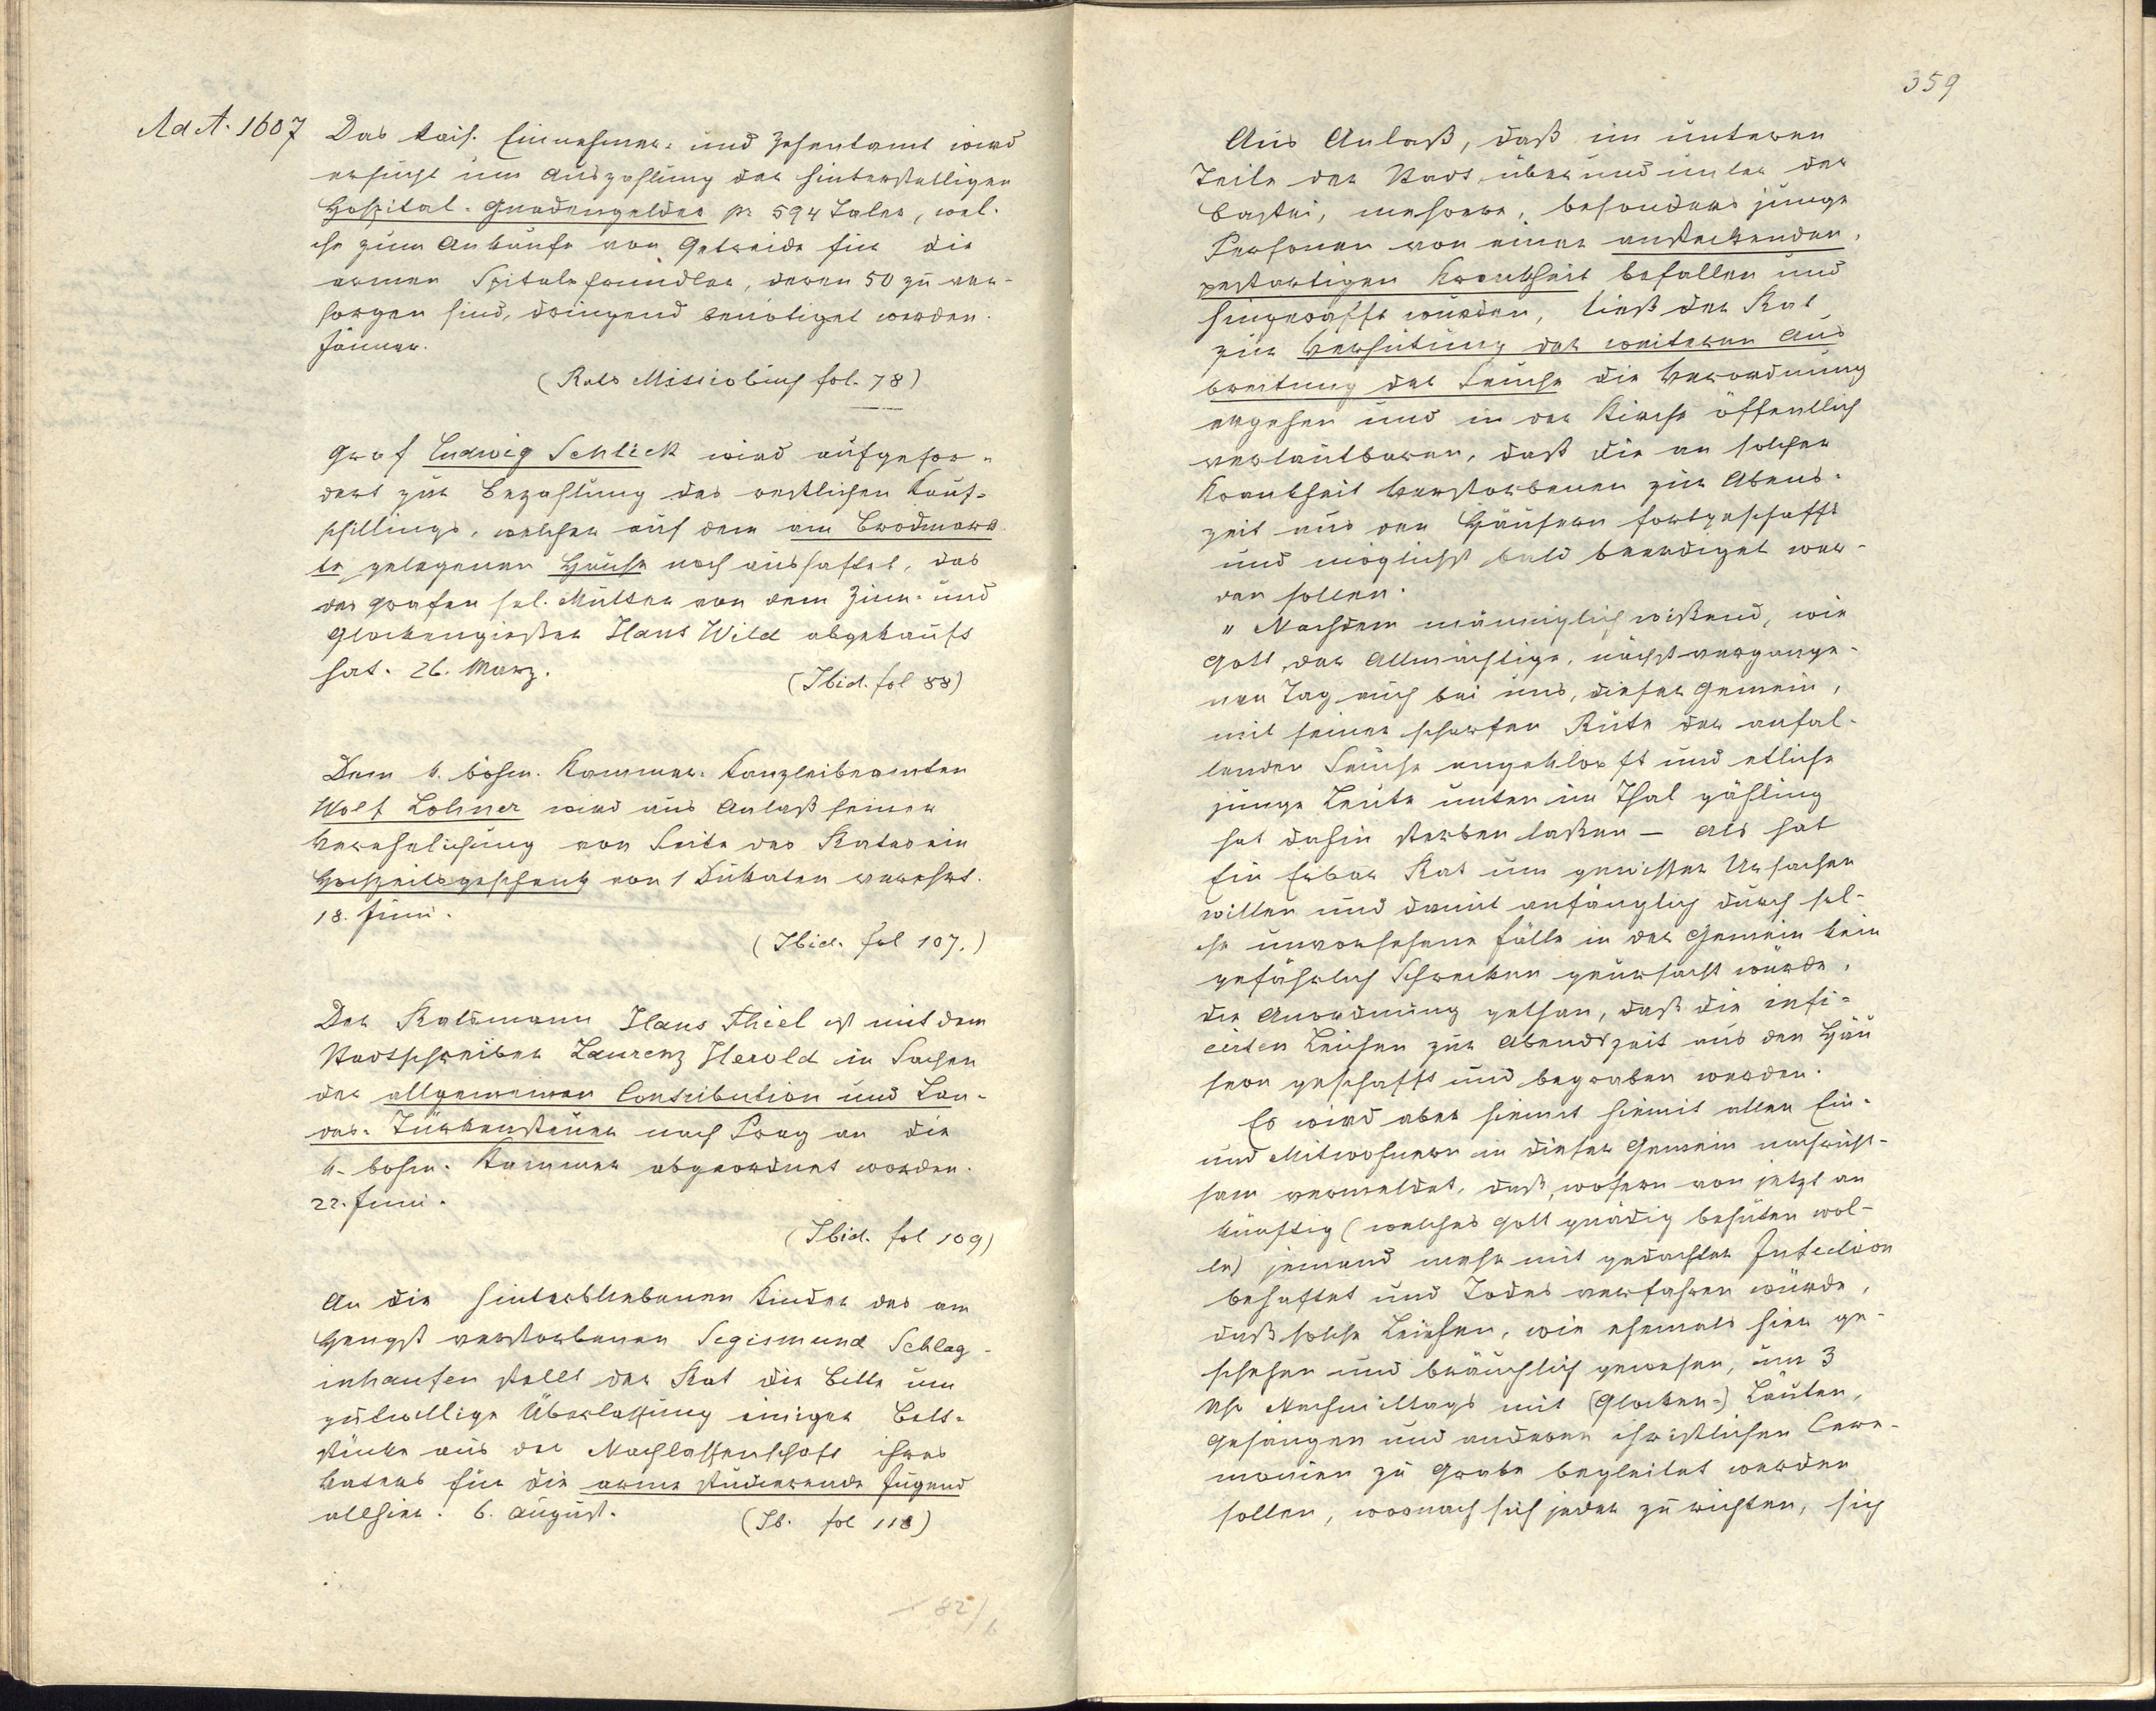 Ad A. 1607
Das kais. Einnehmer- und Zehentamt wird
ersucht um Auszahlung der hinterstelligen
Hospital-Gnadengelder pr 594 Taler, wel-
che zum Ankaufe von Getreide für die
armen Spitalspfründler, deren 50 zu ver-
sorgen sind, dringend benötiget werden.
Jänner.
(Rats Missivbuch fol. 78)
Graf Ludwig Schlick wird aufgefor-
dert zur Bezahlung des restlichen Kauf-
schillings, welcher auf dem am Brodmark-
te gelegenen Hause noch aushaftet, das
des Grafen sel. Mutter von dem Zinn- und
Glockengießer Hans Wild abgekauft
hat. 26. März.
(Ibid. fol 88)
Dem k. böhm. Kammer-Kanzleibeamten
Wolf Lohner wird aus Anlaß seiner
Verehelichung von Seite des Rates ein
Hochzeitsgeschenk von 1 Dukaten verehrt.
18. Juni.
(Ibid. fol 107.)
Der Ratsmann Hans Thiel ist mit dem
Stadtschreiber Laurenz Herold in Sachen
der allgemeinen Contribution und Lan-
des-Türkensteuer nach Prag an die
k. böhm. Kammer abgeordnet worden.
22. Juni.
(Ibid. fol 109)
An die hinterbliebenen Kinder des am
Hengst verstorbenen Segismund Schlag-
inhaufen stellt der Rat die Bitte um
gutwillige Überlassung einiger Bett-
stücke aus der Nachlassenschaft ihres
Vaters für die arme studierende Jugend
allhier. 6. August.
(Ib. fol 118)
82/b
359
Aus Anlaß, daß im unteren
Teile der Stadt, über und unter der
Bastei, mehrere, besonders junge
Personen von einer ansteckenden,
pestartigen Krankheit befallen und
hingerafft wurden, ließ der Rat
zur Verhütung der weiteren Aus
breitung der Seuche die Verordnung
ergehen und in der Kirche öffentlich
verlautbaren, daß die an solcher
Krankheit Verstorbenen zur Abend-
zeit aus den Häusern fortgeschafft
und möglichst bald beerdiget wer-
den sollen.
„ Nachdem männiglich wißend, wie
Gott, der Allmächtige, nächstvergange-
nen Tag auch bei uns, dieser Gemein,
mit seiner scharfen Rute der anfal-
lenden Seuche angeklopft und etliche
junge Leute unten im Thal gähling
hat dahin sterben laßen – als hat
Ein Erbar Rat um gewisser Ursachen
willen und damit anfänglich durch sol-
che unvorsehene Fälle in der Gemein kein
gefährlich Schrecken geursacht würde,
die Anordnung gethan, daß die infi-
cirten Leichen zur Abendszeit aus den Häu
sern geschafft und begraben werden.
Es wird aber hiemit hiemit allen Ein-
und Mitwohnern in dieser Gemein nachricht-
sam vermeldet, daß, wofern von jetzt an
künftig (welches Gott gnädig behüten wol-
le) jemand mehr mit gedachter Infection
behaftet und Todes verfahren würde,
daß solche Leichen, wie ehemals hier ge-
schehen und bräuchlich gewesen, um 3
Uhr Nachmittags mit (Glocken-) Läuten,
Gesängen und anderen christlichen Cere-
monien zu Grabe begleitet werden
sollen, wornach sich jeder zu richten, sich